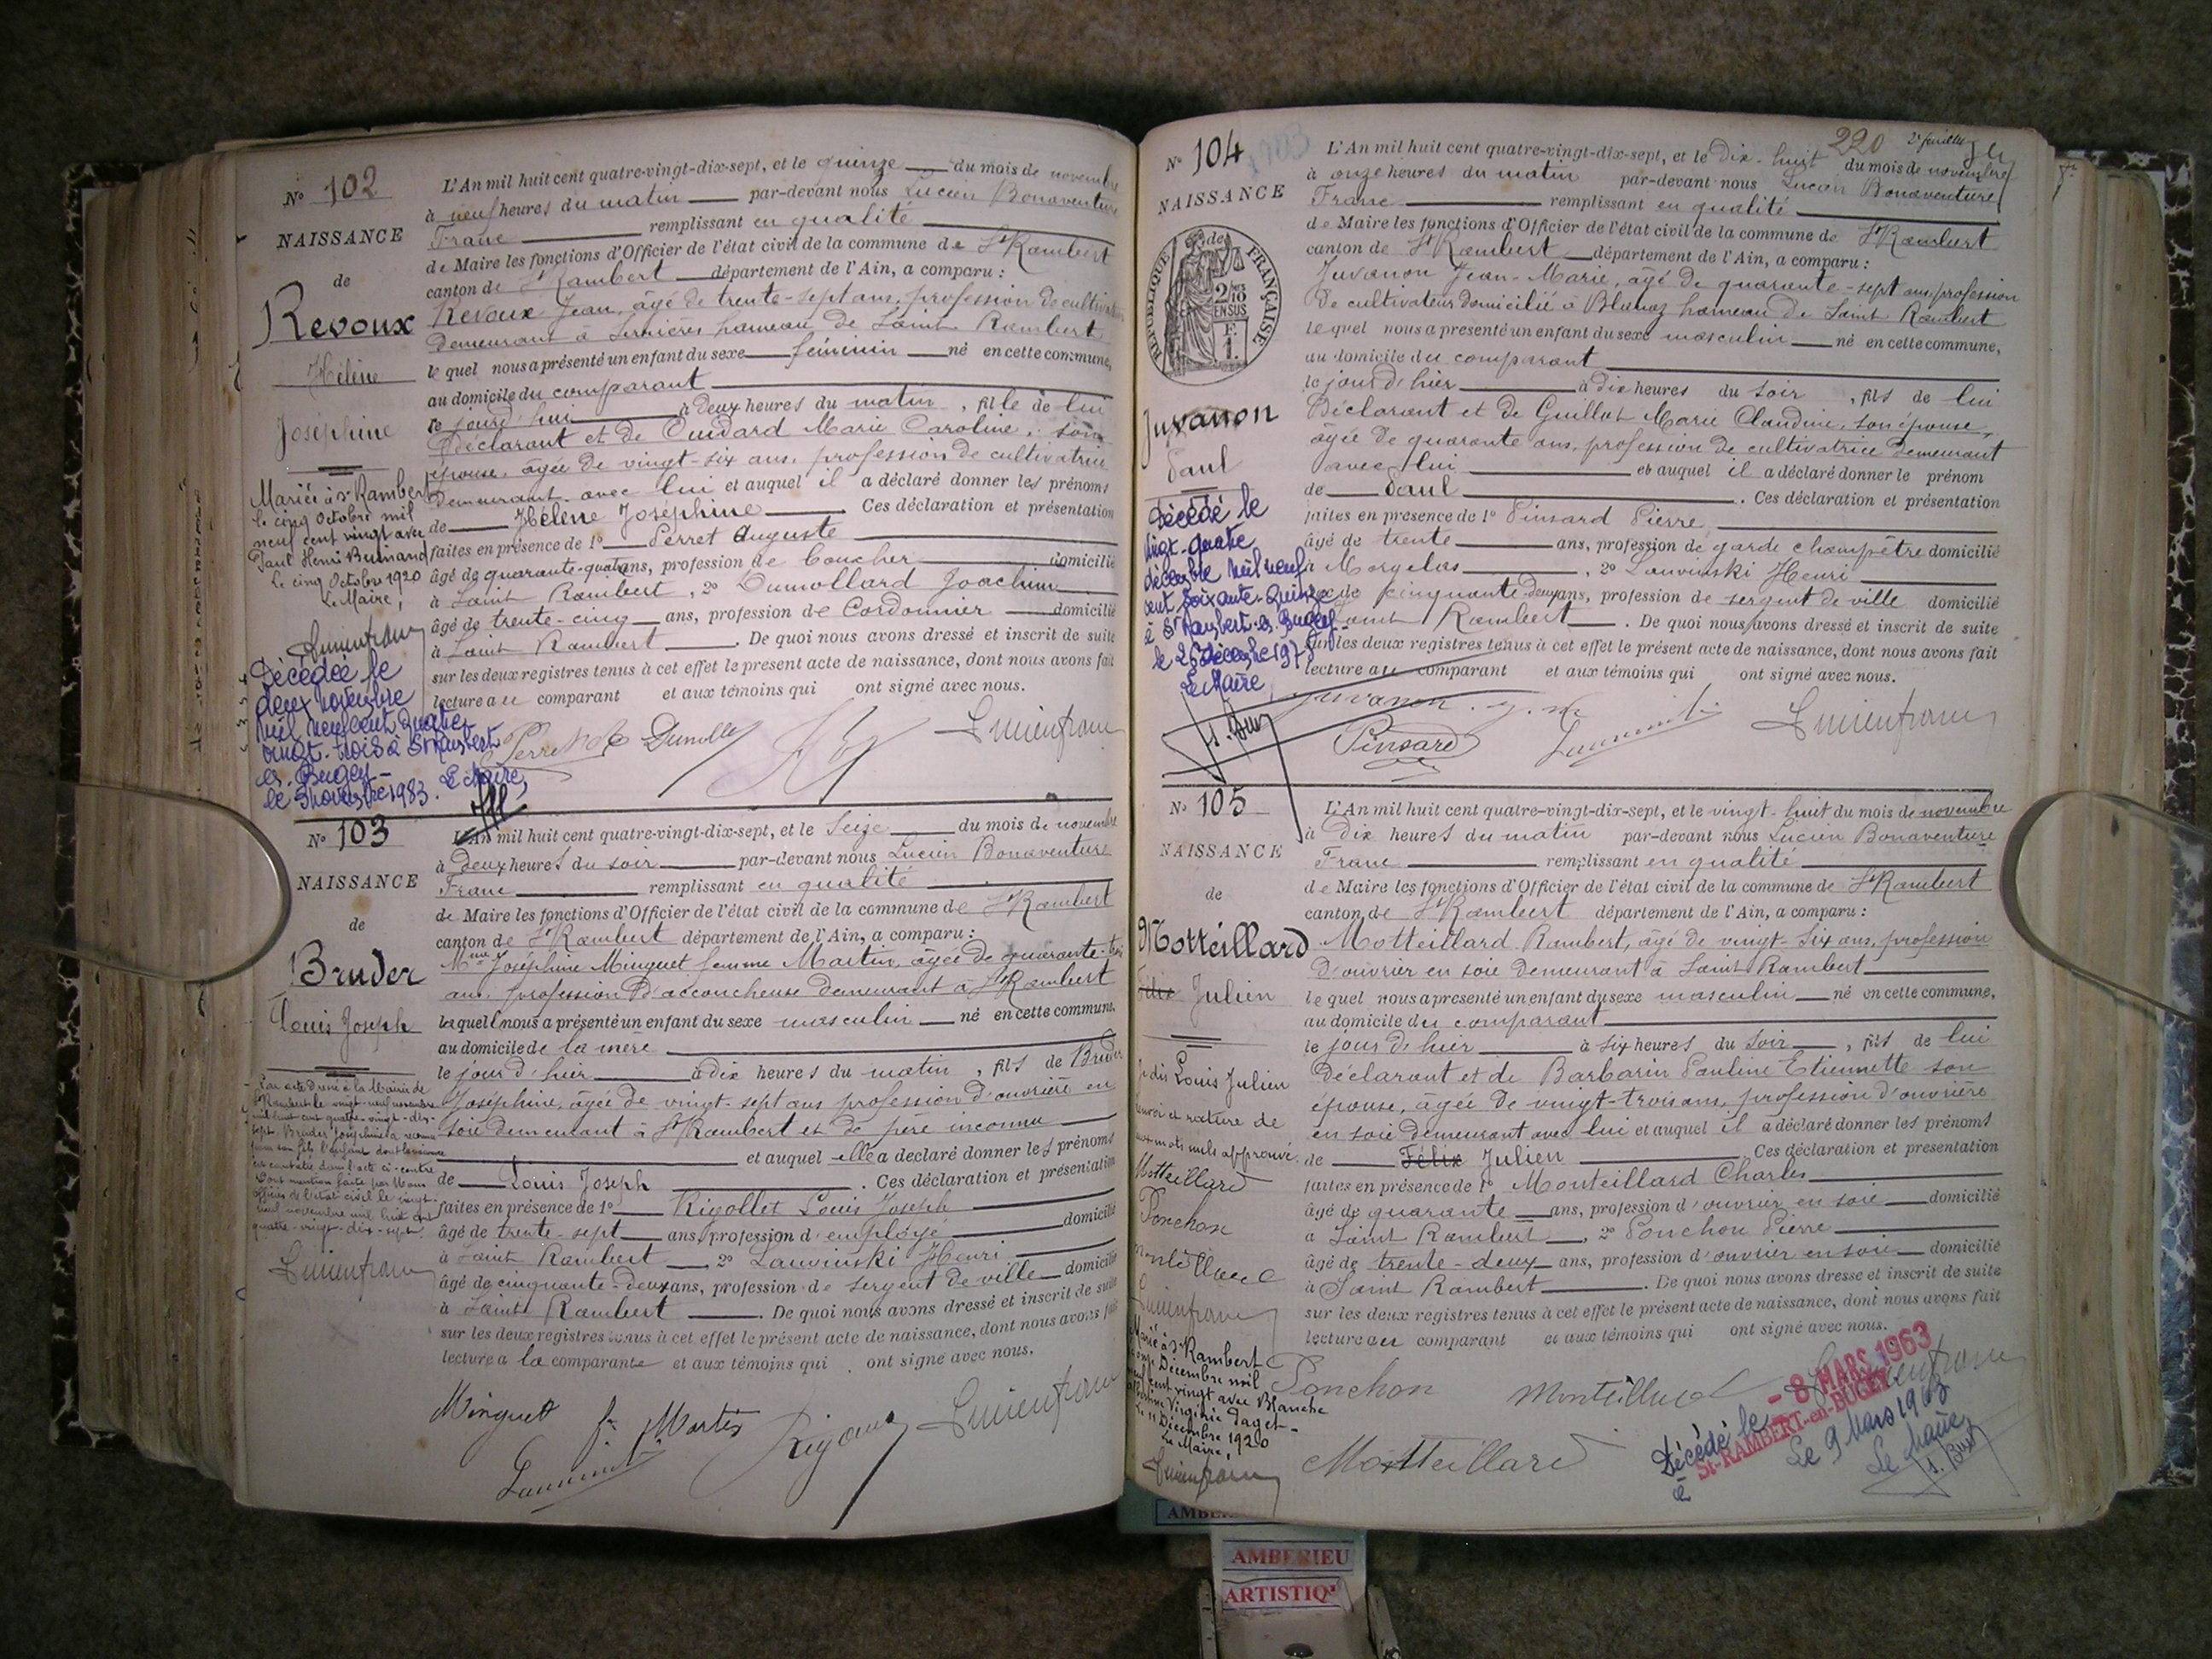 N° 102
NAISSANCE
de
Revoux
Hélène
Joséphine
Mariée à St Rambert
le cinq Octobre mil
neuf cent vingt avec
Paul Henri
Le cinq Octobre 1920
Le Maire,
Décédée le
deux novembre
mil neuf cent quatre
vingt-trois à St Rambert
en Bugey
le 3 novembre 1983. Le Maire,
L'An mil huit cent quatre-vingt-dix-sept, et le quinze du mois de novembre
à neuf heures du matin par-devant nous Lucien Bonaventure
Franc remplissant en qualité
de Maire les fonctions d'Officier de l'état civil de la commune de St Rambert
canton de St Rambert département de l'Ain, a comparu :
Revoux Jean, âgé de trente-sept ans, profession de cultivateur
demeurant à Serrières hameau de Saint Rambert
le quel nous a présenté un enfant du sexe féminin né en cette commune,
au domicile du comparant
le jour d'hui à deux heures du matin, fille de lui
Déclarant et de Cuidard Marie Caroline, son
épouse, âgée de vingt-six ans, profession de cultivatrice
demeurant avec lui et auquel il a déclaré donner les prénoms
de Hélène Joséphine Ces déclaration et présentation
faites en présence de 1° Perret Auguste
âgé de quarante-quatre ans, profession de boucher domicilié
à Saint Rambert, 2° Dumollard Joachim
âgé de trente-cinq ans, profession de Cordonnier domicilié
à Saint Rambert. De quoi nous avons dressé et inscrit de suite
sur les deux registres tenus à cet effet le présent acte de naissance, dont nous avons fait
lecture au comparant et aux témoins qui ont signé avec nous.
N° 103
NAISSANCE
de
Bruder
Louis Joseph
Par acte dressé à la Mairie de
St Rambert le vingt-neuf novembre
mil huit cent quatre-vingt-dix-
sept, Bruder Joséphine a reconnu
pour son fils l'enfant dont la naissance
est constatée dans l'acte ci-contre
Dont mention faite par Nous
officier de l'état civil le vingt-
neuf novembre mil huit cent
quatre-vingt-dix-sept.
L'An mil huit cent quatre-vingt-dix-sept, et le seize du mois de novembre
à deux heures du soir par-devant nous Lucien Bonaventure
Franc remplissant en qualité
de Maire les fonctions d'Officier de l'état civil de la commune de St Rambert
canton de St Rambert département de l'Ain, a comparu :
Mme Joséphine Minguet femme Martin, âgée de quarante-trois
ans, profession d'accoucheuse demeurant à St Rambert
laquelle nous a présenté un enfant du sexe masculin né en cette commune.
au domicile de la mère
le jour d'hier à dix heures du matin, fils de Bruder
Joséphine, âgée de vingt-sept ans profession d'ouvrière en
soie demeurant à St Rambert et de père inconnu
et auquel elle a déclaré donner les prénoms
de Louis Joseph. Ces déclaration et présentation
faites en présence de 1° Rigollet Louis Joseph
âgé de trente-sept ans, profession d'employé domicilié
à Saint Rambert 2° Lauvinski Henri
âgé de cinquante-deux ans, profession de sergent de ville domicilié
à Saint Rambert. De quoi nous avons dressé et inscrit de suite
sur les deux registres tenus à cet effet le présent acte de naissance, dont nous avons fait
lecture a la comparante et aux témoins qui ont signé avec nous.
Minguet fe Martin
220 2e feuille
N° 104
NAISSANCE
RÉPUBLIQUE FRANÇAISE
2/10
EN SUS
F.
1.
de
Juvanon
Paul
Décédé le
vingt-quatre
décembre mil neuf
cent soixante-quinze
à St Rambert-en-Bugey
Le Maire,
L'An mil huit cent quatre-vingt-dix-sept, et le dix-huit du mois de novembre
à onze heures du matin par-devant nous Lucien Bonaventure
Franc remplissant en qualité
de Maire les fonctions d'Officier de l'état civil de la commune de St Rambert
canton de St Rambert département de l'Ain, a comparu :
Juvanon Jean-Marie, âgé de quarante-sept ans, profession
de cultivateur domicilié à Blanaz hameau de Saint Rambert
le quel nous a présenté un enfant du sexe masculin né en cette commune,
au domicile du comparant
le jour d'hier à dix heures du soir, fils de lui
Déclarant et de Guillot Marie Claudine, son épouse,
âgée de quarante ans, profession de cultivatrice demeurant
avec lui et auquel il a déclaré donner le prénom
de Paul. Ces déclaration et présentation
faites en présence de 1° Pinsard Pierre
âgé de trente ans, profession de garde champêtre domicilié
à Morgelas, 2° Lauvinski Henri
âgé de cinquante-deux ans, profession de sergent de ville domicilié
à Saint Rambert. De quoi nous avons dressé et inscrit de suite
sur les deux registres tenus à cet effet le présent acte de naissance, dont nous avons fait
lecture au comparant et aux témoins qui ont signé avec nous.
Juvanon
Pinsard
N° 105
NAISSANCE
de
Mottéillard
Félix Julien
je dis Louis Julien
renvoi et rature de
mots nuls approuvé.
Motteillard
Ponchon
Monteillard
Marié à St Rambert
le onze Décembre mil
neuf cent vingt avec Blanche
Virginie Paget
Le 11 Décembre 1920
Le Maire,
L'An mil huit cent quatre-vingt-dix-sept, et le vingt-huit du mois de novembre
à dix heures du matin par-devant nous Lucien Bonaventure
Franc remplissant en qualité
de Maire les fonctions d'Officier de l'état civil de la commune de St Rambert
canton de St Rambert département de l'Ain, a comparu :
Motteillard Rambert, âgé de vingt-six ans, profession
d'ouvrier en soie demeurant à Saint Rambert
le quel nous a présenté un enfant du sexe masculin né en cette commune,
au domicile du comparant
le jour d'hier à six heures du soir, fils de lui
Déclarant et de Barbarin Pauline Etiennette son
épouse, âgée de vingt-trois ans, profession d'ouvrière
en soie demeurant avec lui et auquel il a déclaré donner les prénoms
de Félix Julien Ces déclaration et présentation
faites en présence de 1° Monteillard Charles
âgé de quarante ans, profession d'ouvrier en soie domicilié
à Saint Rambert, 2° Ponchon Pierre
âgé de trente-deux ans, profession d'ouvrier en soie domicilié
à Saint Rambert. De quoi nous avons dressé et inscrit de suite
sur les deux registres tenus à cet effet le présent acte de naissance, dont nous avons fait
lecture au comparant et aux témoins qui ont signé avec nous.
Ponchon Monteillard
Motteillard
Décédé le - 8 MARS 1963
à St-RAMBERT-en-BUGEY
Le 9 Mars 1963
Le Maire,
AMBERIEU
ARTISTIQ